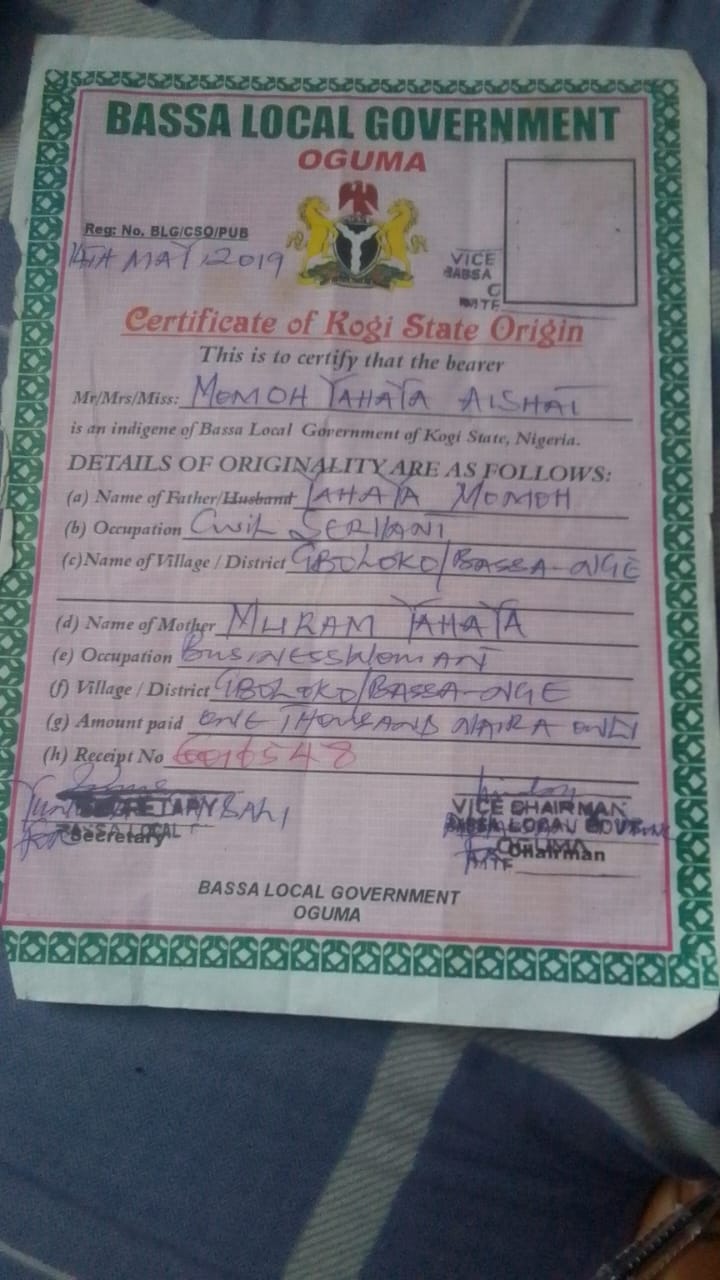 BASSA LOCAL GOVERNMENT
OGUMA
Reg: No. BLG/CSO/PUB
14TH MAY, 2019
VICE
BASSA
Certificate of Kogi State Origin
This is to certify that the bearer
Mr/Mrs/Miss: MOMOH YAHAYA AISHAT
is an indigene of Bassa Local Government of Kogi State, Nigeria.
DETAILS OF ORIGINALITY ARE AS FOLLOWS:
(a) Name of Father/Husband YAHAYA MOMOH
(b) Occupation CIVIL SERVANT
(c)Name of Village / District GBOLOKO/BASSA-NGE
(d) Name of Mother MURAM YAHAYA
(e) Occupation BUSINESSWOMAN
(f) Village / District GBOLOKO/BASSA-NGE
(g) Amount paid ONE THOUSAND NAIRA ONLY
(h) Receipt No 6016548
SECRETARY
BASSA LOCAL
Secretary
VICE CHAIRMAN
BASSA LOCAL GOVT
OGUMA
Chairman
BASSA LOCAL GOVERNMENT
OGUMA